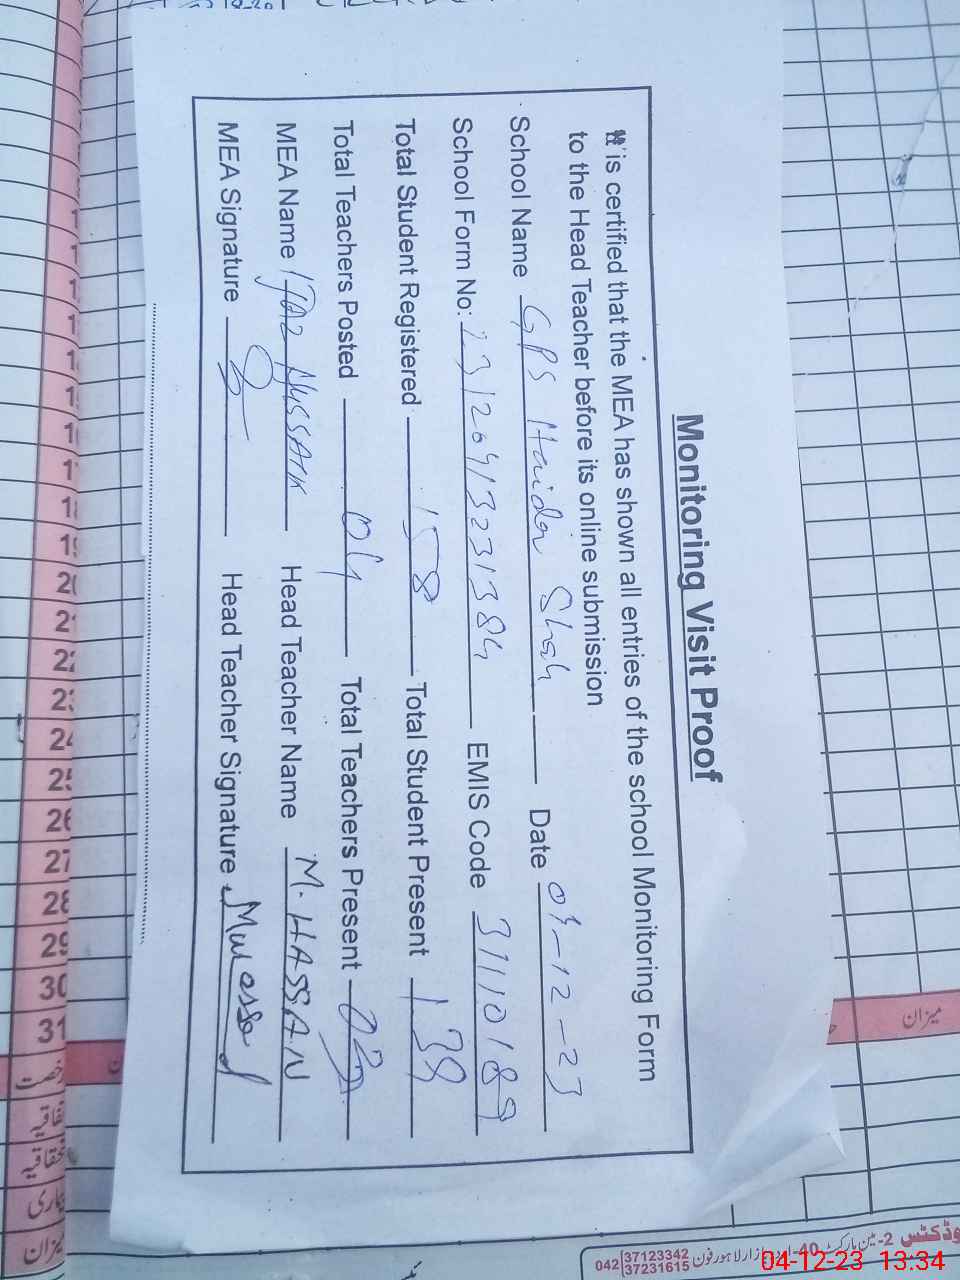 Monitoring Visit Proof
It is certified that the MEA has shown all entries of the school Monitoring Form
to the Head Teacher before its online submission
School Name GPS Haider Shah Date 04-12-23
School Form No: 23120413231384 EMIS Code 31110189
Total Student Registered 158 Total Student Present 138
Total Teachers Posted 04 Total Teachers Present 03
MEA Name IJAZ HUSSAIN Head Teacher Name M. HASSAN
MEA Signature Head Teacher Signature
19
20
22
24
25
26
27
28
29
30
31
رخصت
اتفاقیہ
استحقاقیہ
بیماری
میزان
میزان
042 37123342
37231615
04-12-23 13:34